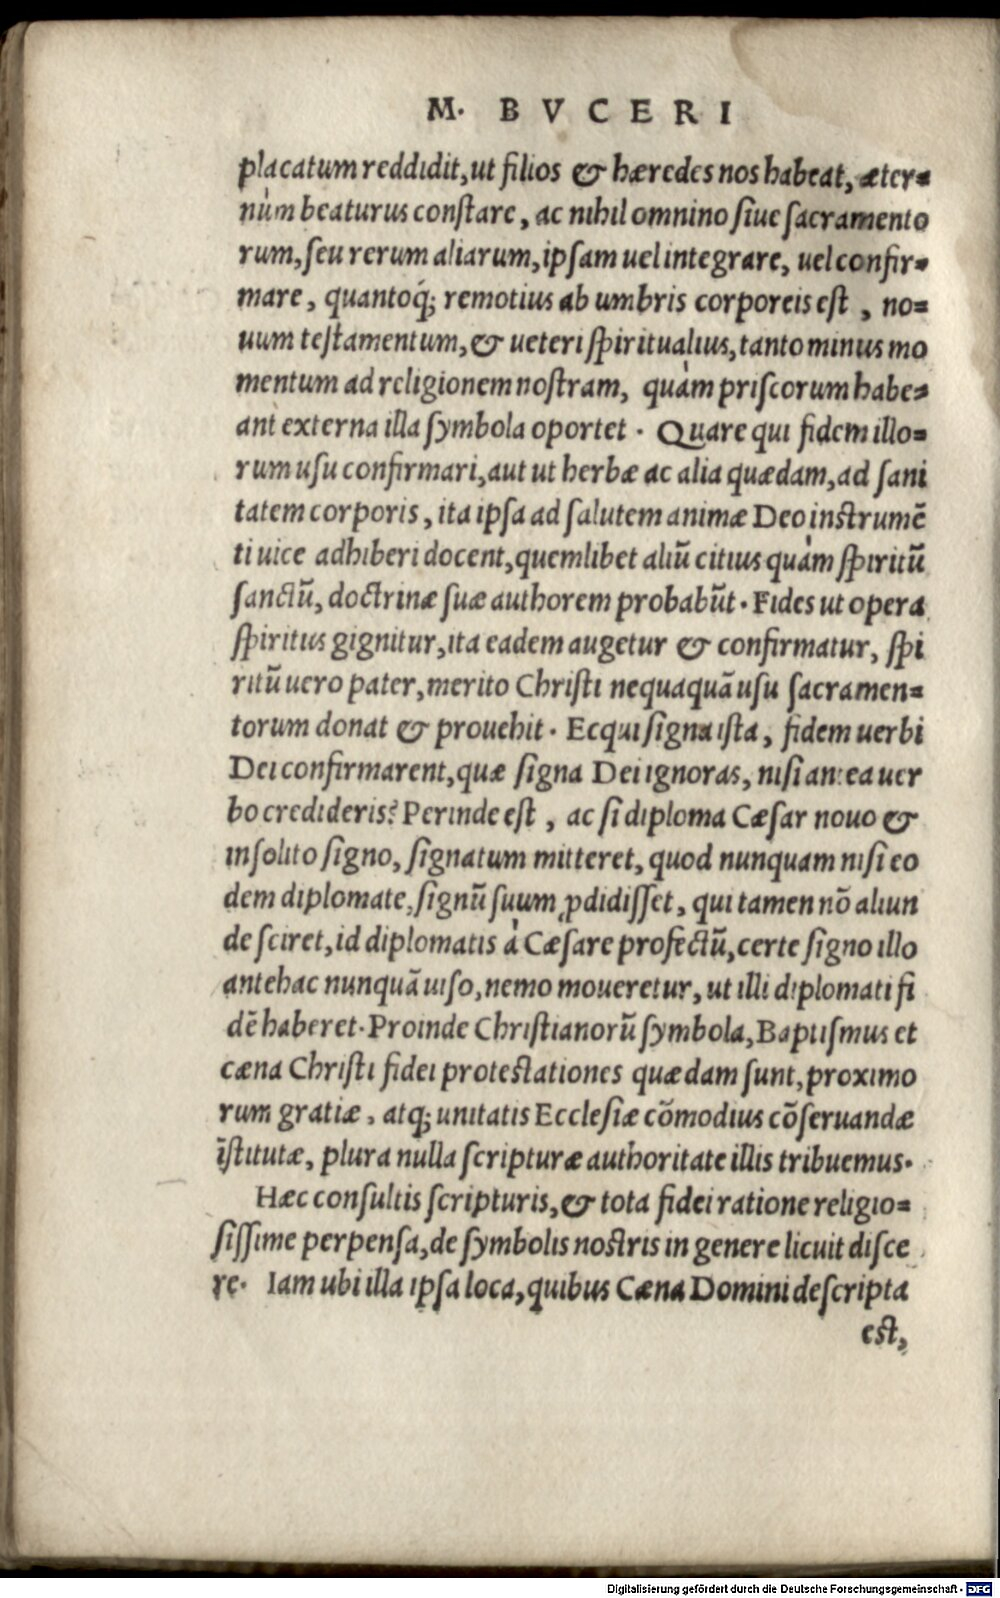 M. BVCERI
placatum reddidit, ut filios & hæredes nos habeat, æter=
nùm beaturus constare, ac nihil omnino siue sacramento
rum, seu rerum aliarum, ipsam uel integrare, uel confir=
mare, quantoq́; remotius ab umbris corporeis est, no=
uum testamentum, & ueteri spiritualius, tanto minus mo
mentum ad religionem nostram, quàm priscorum habe=
ant externa illa symbola oportet. Quare qui fidem illo=
rum usu confirmari, aut ut herbæ ac alia quædam, ad sani
tatem corporis, ita ipsa ad salutem animæ Deo instrumẽ
ti uice adhiberi docent, quemlibet aliũ citius quàm spiritũ
sanctũ, doctrinæ suæ authorem probabũt. Fides ut opera
spiritus gignitur, ita eadem augetur & confirmatur, spi
ritũ uero pater, merito Christi nequaquã usu sacramen=
torum donat & prouehit. Ecqui signa ista, fidem uerbi
Dei confirmarent, quæ signa Dei ignoras, nisi antea uer
bo credideris? Perinde est, ac si diploma Cæsar nouo &
insolito signo, signatum mitteret, quod nunquam nisi eo
dem diplomate, signũ suum ꝓdidisset, qui tamen nõ aliun
de sciret, id diplomatis à Cæsare profectũ, certe signo illo
antehac nunquã uiso, nemo moueretur, ut illi diplomati fi
dẽ haberet. Proinde Christianorũ symbola, Baptismus et
cæna Christi fidei protestationes quædam sunt, proximo
rum gratiæ, atq; unitatis Ecclesiæ cõmodius cõseruandæ
ĩstitutæ, plura nulla scripturæ authoritate illis tribuemus.
Hæc consultis scripturis, & tota fidei ratione religio=
sissime perpensa, de symbolis nostris in genere licuit disce
re. Iam ubi illa ipsa loca, quibus Cæna Domini descripta
est,
Digitalisierung gefördert durch die Deutsche Forschungsgemeinschaft - DFG